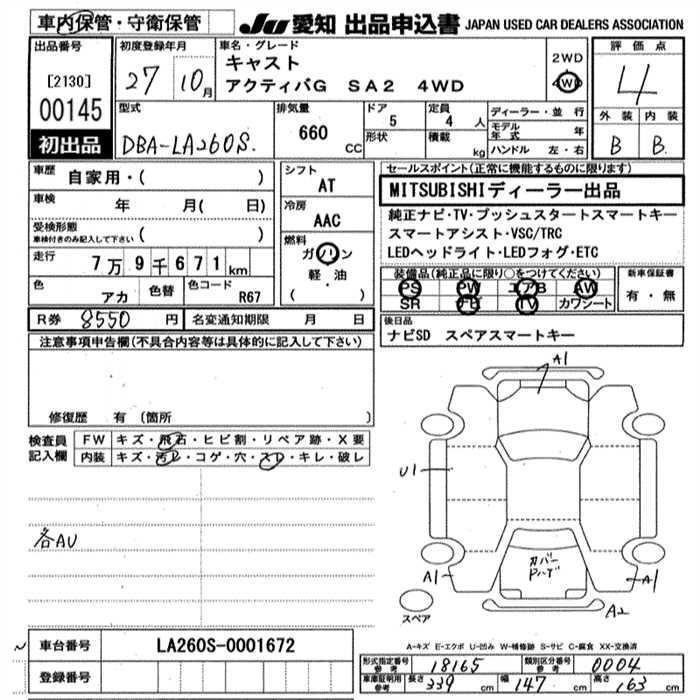 車内保管・守衛保管
JU 愛知 出品申込書 JAPAN USED CAR DEALERS ASSOCIATION
出品番号
[2130]
00145
初出品
初度登録年月
27 10月
車名・グレード
キャスト
アクティバG SA2 4WD
2WD
4WD
評価点
4
外装 内装
B B
型式
DBA-LA260S.
排気量
660 CC
ドア
5
形状
定員
4 人
積載
kg
ディーラー・並行
モデル年式 年
ハンドル 左・右
車歴
自家用・( )
車検
年 月( 日)
受検形態
車検付きのみ記入して下さい ( )
走行
7万9千671km
色
アカ
色替
色コード
R67
シフト
AT
冷房
AAC
燃料
ガソリン
軽・油
( ・ )
セールスポイント(正常に機能するものに限ります)
MITSUBISHIディーラー出品
純正ナビ・TV・プッシュスタートスマートキー
スマートアシスト・VSC/TRC
LEDヘッドライト・LEDフォグ・ETC
装備品(純正品に限り○をつけてください)
PS PW エアB AW
SR TV カワシート
新車保証書
有・無
R券 8550 円
名変通知期限 月 日
後日品
ナビSD スペアスマートキー
注意事項申告欄(不具合内容等は具体的に記入して下さい)
修復歴 有 (箇所 )
検査員記入欄
FW キズ・飛石・ヒビ割・リペア跡・X要
内装 キズ・汚レ・コゲ・穴・スレ・キレ・破レ
各AU
A1
U1
カバー
Pハゲ
A1
A1
A2
スペア
A-キズ E-エクボ U-凹み W-補修跡 S-サビ C-腐食 XX-交換済
車台番号 LA260S-0001672
登録番号
形式指定番号 参考 18165
類別区分番号 参考 0004
車庫証明用 参考 長さ 339 cm 幅 147 cm 高さ 163 cm